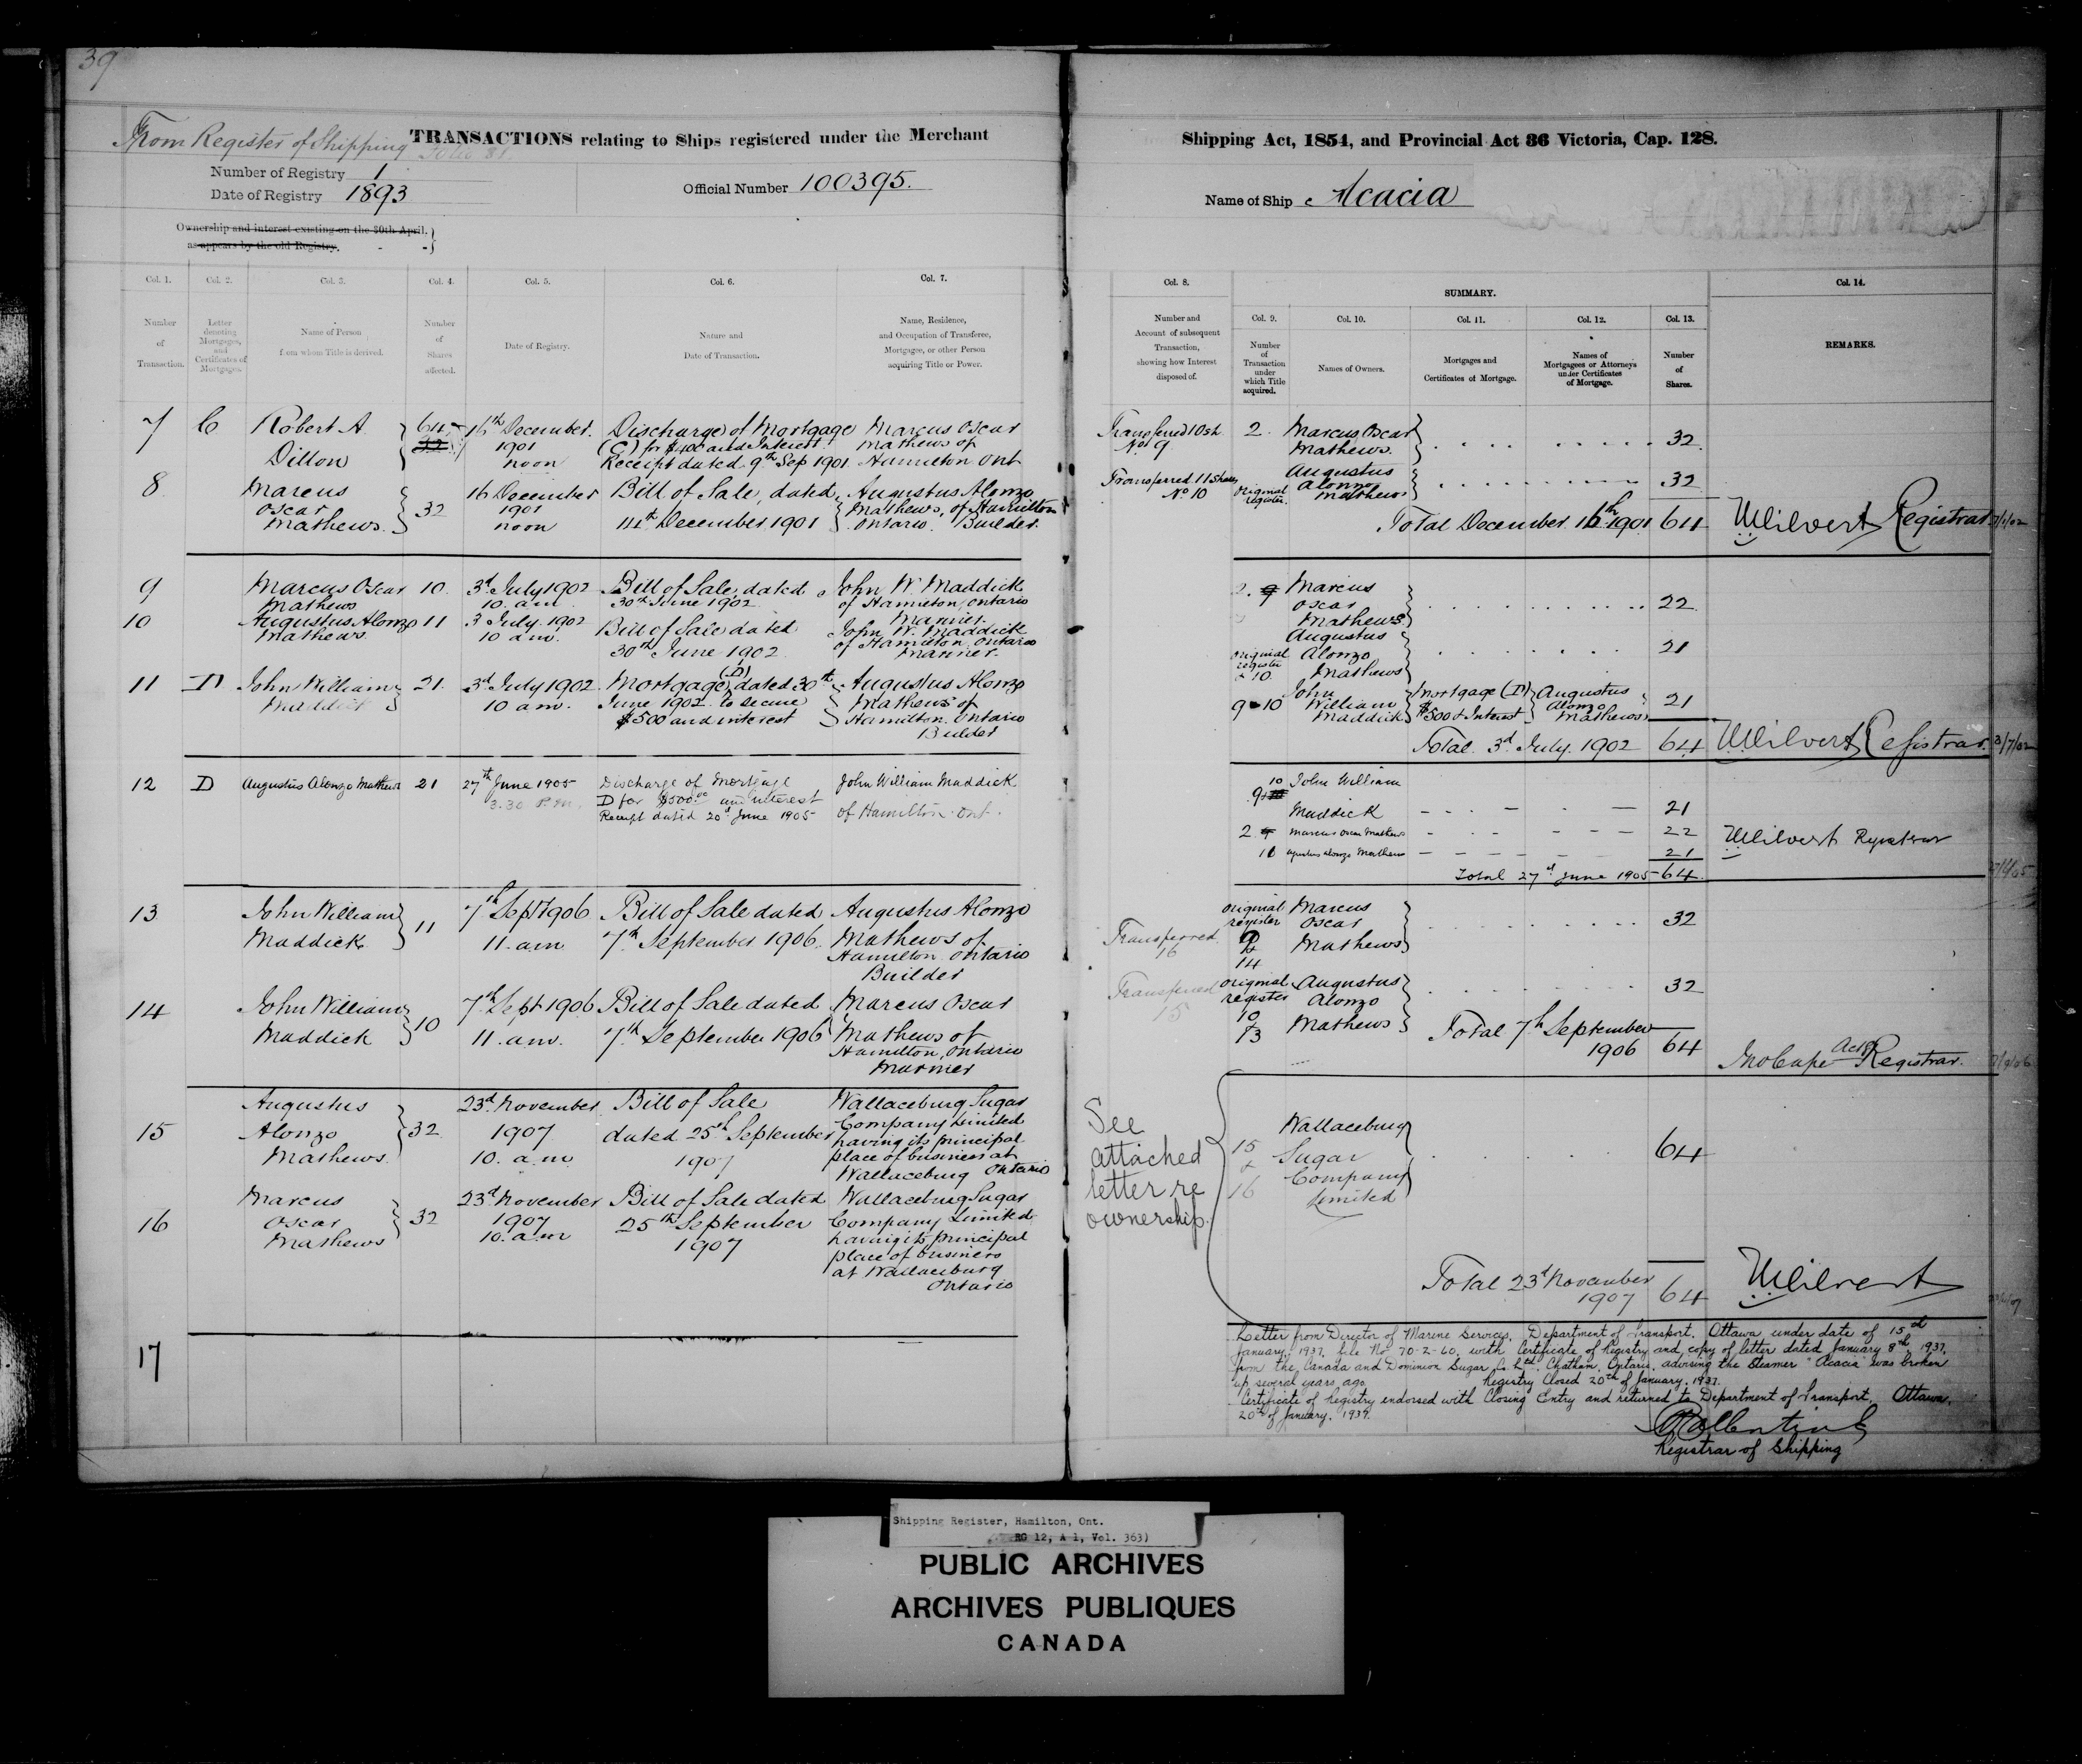 39
From Register of Shipping Folio 81
TRANSACTIONS relating to Ships registered under the Merchant
Number of Registry 1
Date of Registry 1893
Official Number 100395.
Ownership and interest existing on the 30th April,
as appears by the old Registry,
Col. 1.
Col. 2.
Col. 3.
Col. 4.
Col. 5.
Col. 6.
Col. 7.
Number
of
Transaction.
Letter
denoting
Mortgages,
and
Certificates of
Mortgages.
Name of Person
from whom Title is derived.
Number
of
Shares
affected.
Date of Registry.
Nature and
Date of Transaction.
Name, Residence,
and Occupation of Transferee,
Mortgagee, or other Person
acquiring Title or Power.
7
C
Robert A.
Dillon
64
32
16th December.
1901
noon
Discharge of Mortgage
(C) for $400 and Interest
Receipt dated 9th Sep 1901
Marcus Oscar
Mathews of
Hamilton Ont
8
Marcus
Oscar
Mathews.
32
16 December
1901
noon
Bill of Sale, dated
14th December 1901
Augustus Alonzo
Mathews, of Hamilton
Ontario. Builder.
9
Marcus Oscar
Mathews
10
3d July 1902
10. am
Bill of Sale, dated
30th June 1902
John W. Maddick
of Hamilton, Ontario
Mariner.
10
Augustus Alonzo
Mathews
11
3 July. 1902
10 am.
Bill of Sale dated
30th June 1902
John W. Maddick
of Hamilton. Ontario
Mariner.
11
D
John William
Maddick
21.
3d July 1902.
10 am.
Mortgage (D) dated 30th
June 1902 to secure
$500 and interest
Augustus Alonzo
Mathews of
Hamilton. Ontario
Builder
12
D
Augustus Alonzo Mathews
21
27th June 1905
3.30 P.M.
Discharge of Mortgage
D for $500.00 and interest
Receipt dated 20th June 1905
John William Maddick
of Hamilton. Ont.
13
John William
Maddick
11
7th Sept 1906
11. am
Bill of Sale dated
7th September 1906.
Augustus Alonzo
Mathews of
Hamilton. Ontario
Builder
14
John William
Maddick
10
7th Sept 1906
11. am.
Bill of Sale dated
7th September 1906
Marcus Oscar
Mathews of
Hamilton, Ontario
Mariner
15
Augustus
Alonzo
Mathews.
32
23d November
1907
10. am
Bill of Sale
dated 25th September
1907
Wallaceburg Sugar
Company Limited
having its principal
place of business at
Wallaceburg Ontario
16
Marcus
Oscar
Mathews
32
23d November
1907
10. am
Bill of Sale dated
25th September
1907
Wallaceburg Sugar
Company Limited
having its principal
place of business
at Wallaceburg
Ontario
17
Shipping Act, 1854, and Provincial Act 36 Victoria, Cap. 128.
Name of Ship Acacia
Col. 8.
SUMMARY.
Col. 14.
Number and
Account of subsequent
Transaction,
showing how Interest
disposed of.
Col. 9.
Col. 10.
Col. 11.
Col. 12.
Col. 13.
Number
of
Transaction
under
which Title
acquired.
Names of Owners.
Mortgages and
Certificates of Mortgage.
Names of
Mortgagees or Attorneys
under Certificates
of Mortgage.
Number
of
Shares.
REMARKS.
Transferred 10 sh
No. 9
2.
Marcus Oscar
Mathews.
32
Transferred 11 Shares
No 10
Original
register.
Augustus
Alonzo
Mathews
32
Total December 16th 1901 64
Registrar
2. 9
Marcus
Oscar
Mathews
22
original
register
& 10.
Augustus
Alonzo
Mathews
21
9 & 10
John
William
Maddick
Mortgage (D)
$500 & Interest
Augustus
Alonzo
Mathews
21
Total. 3d July. 1902 64
Registrar. 3/7/02
10
9
John William
Maddick
21
2
Marcus Oscar Mathews
22
Augustus Alonzo Mathews
21
Total 27th June 1905 64
Registrar
Transferred
16
original
register
9
&
14
Marcus
Oscar
Mathews
32
Transferred
15
original
register
10
&
13
Augustus
Alonzo
Mathews
32
Total 7th September
1906 64
Actg Registrar.
See
attached
letter re
ownership.
15
&
16
Wallaceburg
Sugar
Company
Limited
64
Total 23d November
1907 64
Letter from Director of Marine Services, Department of Transport, Ottawa, under date of 15th
January, 1937, file No 70-2-60, with Certificate of Registry and copy of letter dated January 8th, 1937,
from the Canada and Dominion Sugar Co. Ltd. Chatham, Ontario, advising the Steamer "Acacia" was broken
up several years ago. Registry Closed 20th of January, 1937.
Certificate of Registry endorsed with Closing Entry and returned to Department of Transport, Ottawa,
20th of January, 1937.
Registrar of Shipping
Shipping Register, Hamilton, Ont.
RG 12, A 1, Vol. 363)
PUBLIC ARCHIVES
ARCHIVES PUBLIQUES
CANADA